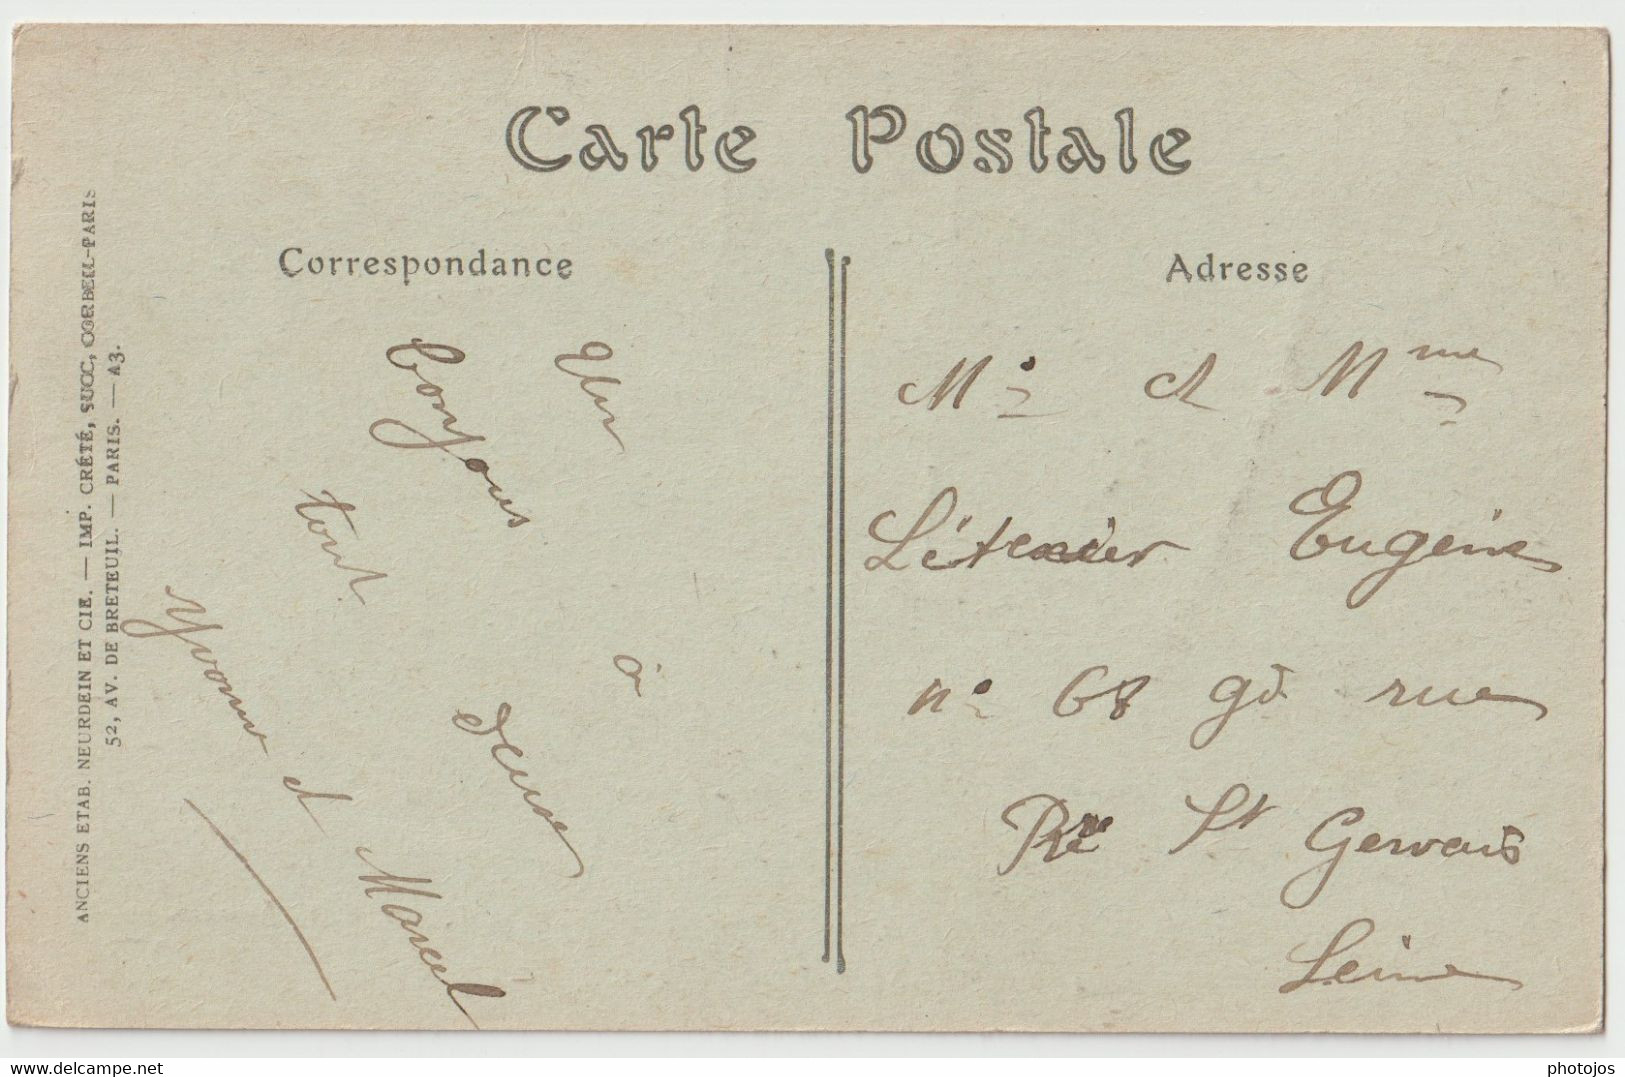 Carte Postale
Correspondance
Adresse
ANCIENS ETAB. NEURDEIN ET CIE. — IMP. CRÉTÉ, SUCC, CORBEIL-PARIS
52, AV. DE BRETEUIL. — PARIS. — A3.
Un
bonjour à
tout deux
Yvonne et Marcel
Mr et Mme
Eugène
no 68 gd rue
Pré St Gervais
Seine
www.delcampe.net
photojos